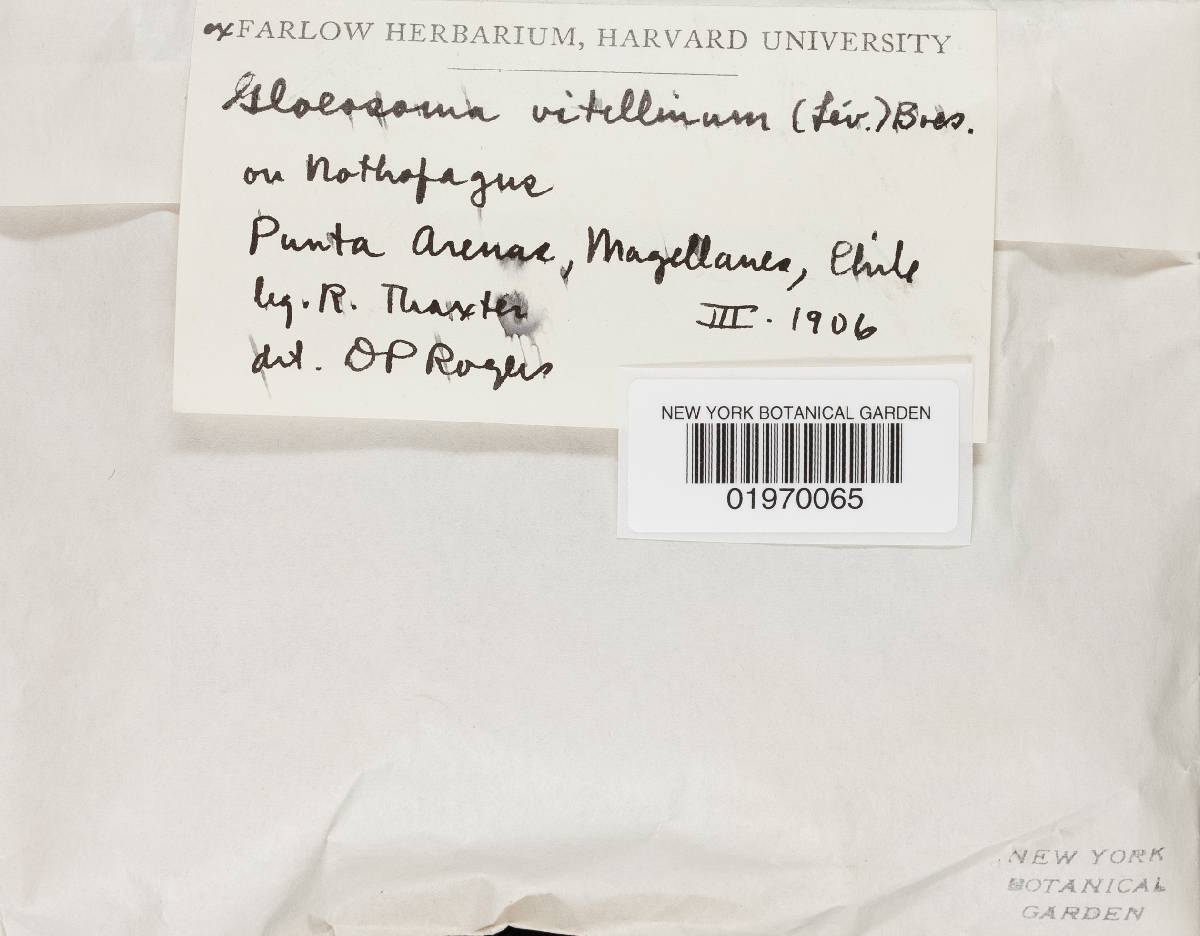 ex FARLOW HERBARIUM, HARVARD UNIVERSITY
Gloeosoma vitellinum (Lév.) Bres.
on Nothofagus
Punta Arenas, Magellanes, Chile
leg. R. Thaxter III. 1906
det. DP Rogers
NEW YORK BOTANICAL GARDEN
01970065
NEW YORK
BOTANICAL
GARDEN